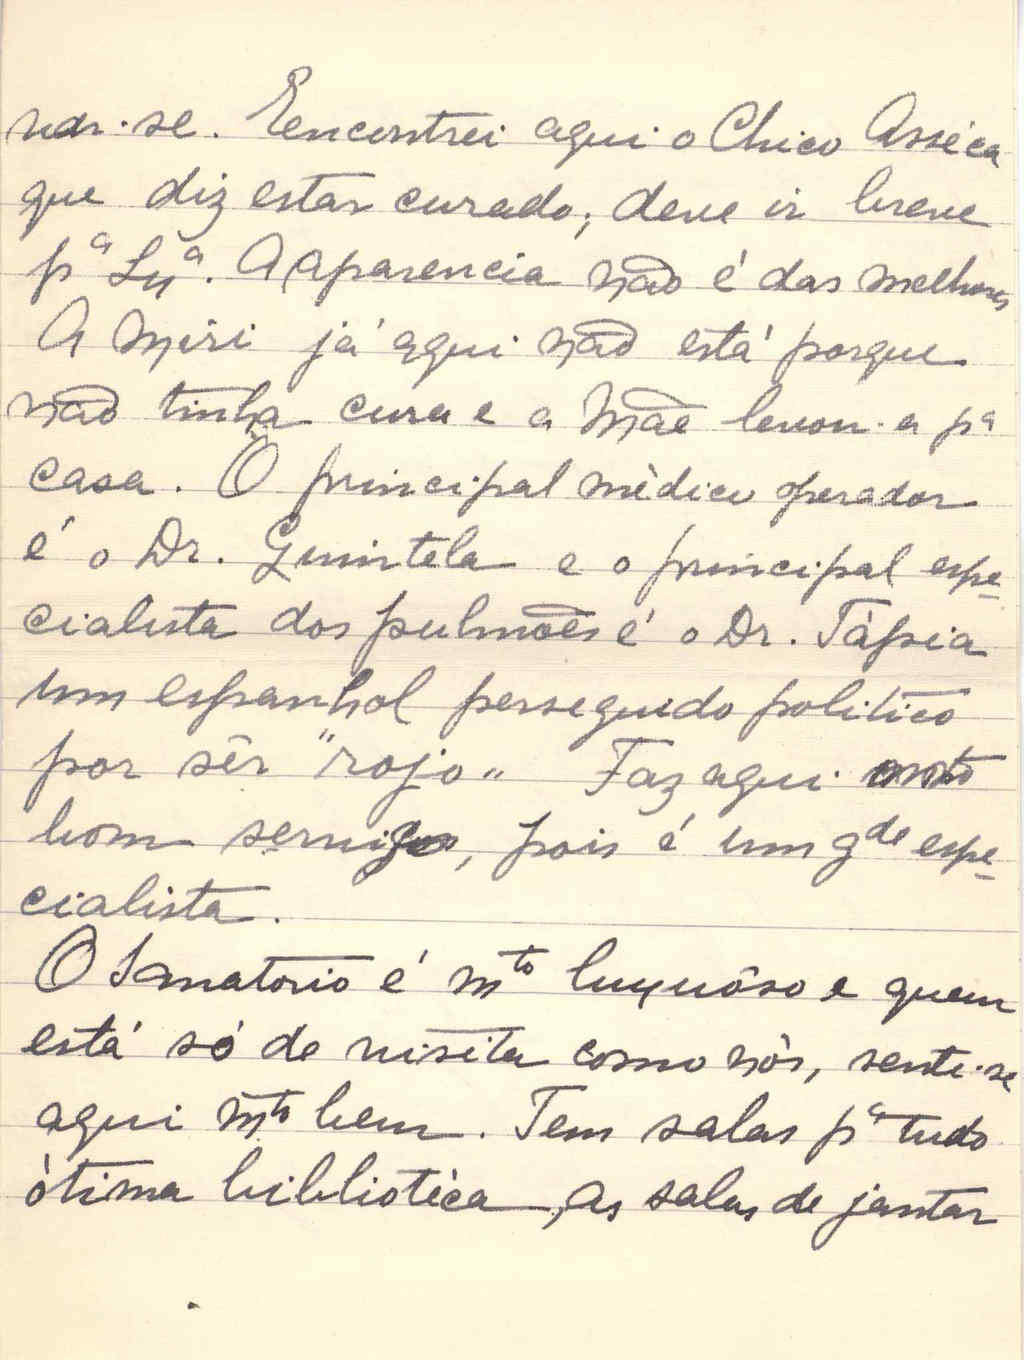 nar-se. Encontrei aqui o Chico Asséca
que diz estar curado, deve ir breve
pª Lxª. A aparencia não é das melhores
A Miri já aqui não está porque
não tinha cura e a Mãe levou-a pª
casa. O principal médico operador
é o Dr. Quintela e o principal espe-
cialista dos pulmões é o Dr. Tápia
um espanhol perseguido politico
por sêr "rojo" Faz aqui mto
bom serviço, pois é um gde espe-
cialista.
O Sanatorio é mto luxuôso e quem
está só de visita como nós, sente-se
aqui mto bem. Tem salas pª tudo
òtima bibliotèca, as salas de jantar